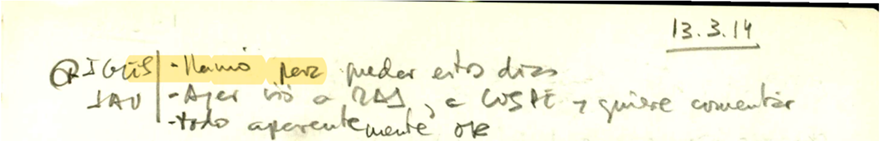 13.3.14
- Llamó para quedar estos días
- Ayer vió a RAJ, a COSPE y quiere comentar
- todo aparentemente OK